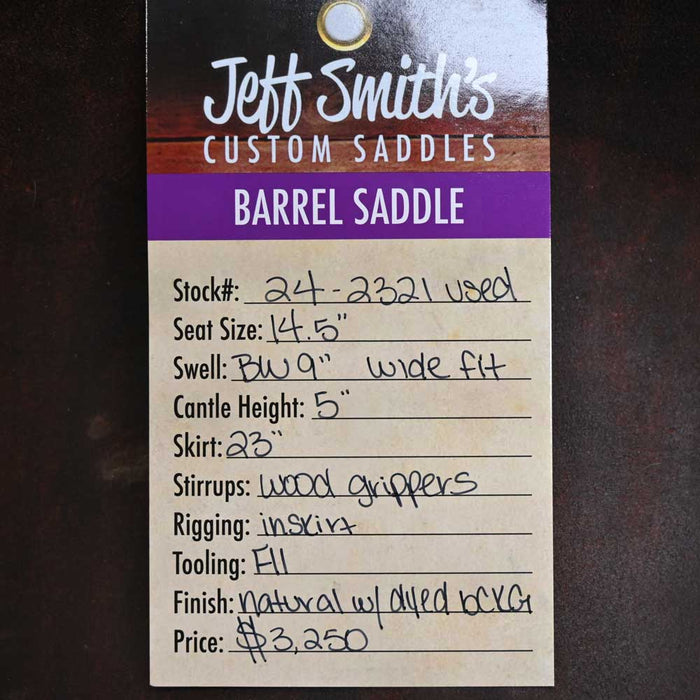 Jeff Smith's
CUSTOM SADDLES
BARREL SADDLE
Stock#: 24-2321 used
Seat Size: 14.5"
Swell: BW 9" wide fit
Cantle Height: 5"
Skirt: 23"
Stirrups: wood grippers
Rigging: inskirt
Tooling: F11
Finish: natural w/ dyed bCKG
Price: $3,250